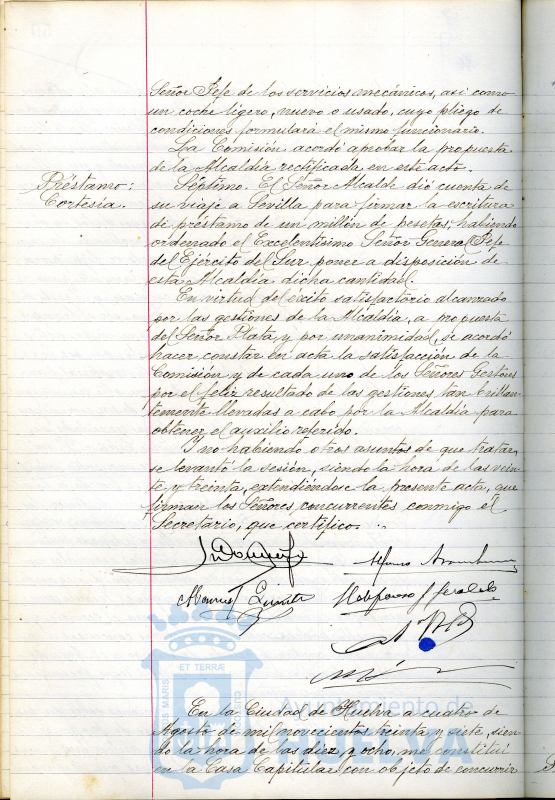 Señor Jefe de los servicios mecánicos, así como
un coche ligero, nuevo o usado, cuyo pliego de
condiciones formulará el mismo funcionario.
La Comisión acordó aprobar la propuesta
de la Alcaldía rectificada en este acto.
Préstamo:
Cortesía.
Séptimo. El Señor Alcalde dió cuenta de
su viaje a Sevilla para firmar la escritura
de préstamo de un millón de pesetas, habiendo
ordenado el Excelentísimo Señor General Jefe
del Ejército del Sur poner a disposición de
esta Alcaldía dicha cantidad.
En virtud del éxito satisfactorio alcanzado
por las gestiones de la Alcaldía, a propuesta
del Señor Plata y por unanimidad, se acordó
hacer constar en acta la satisfacción de la
Comisión y de cada uno de los Señores Gestores
por el feliz resultado de las gestiones tan brillan-
temente llevadas a cabo por la Alcaldía para
obtener el auxilio referido.
Y no habiendo otros asuntos de que tratar,
se levantó la sesión, siendo la hora de las vein-
te y treinta, extendiéndose la presente acta, que
firman los Señores concurrentes conmigo el
Secretario, que certifico.
ET TERRÆ
Ayuntamiento de
En la Ciudad de Huelva a cuatro de
Agosto de mil novecientos treinta y siete, sien-
do la hora de las diez y ocho, me constituí
en la Casa Capitular con objeto de concurrir